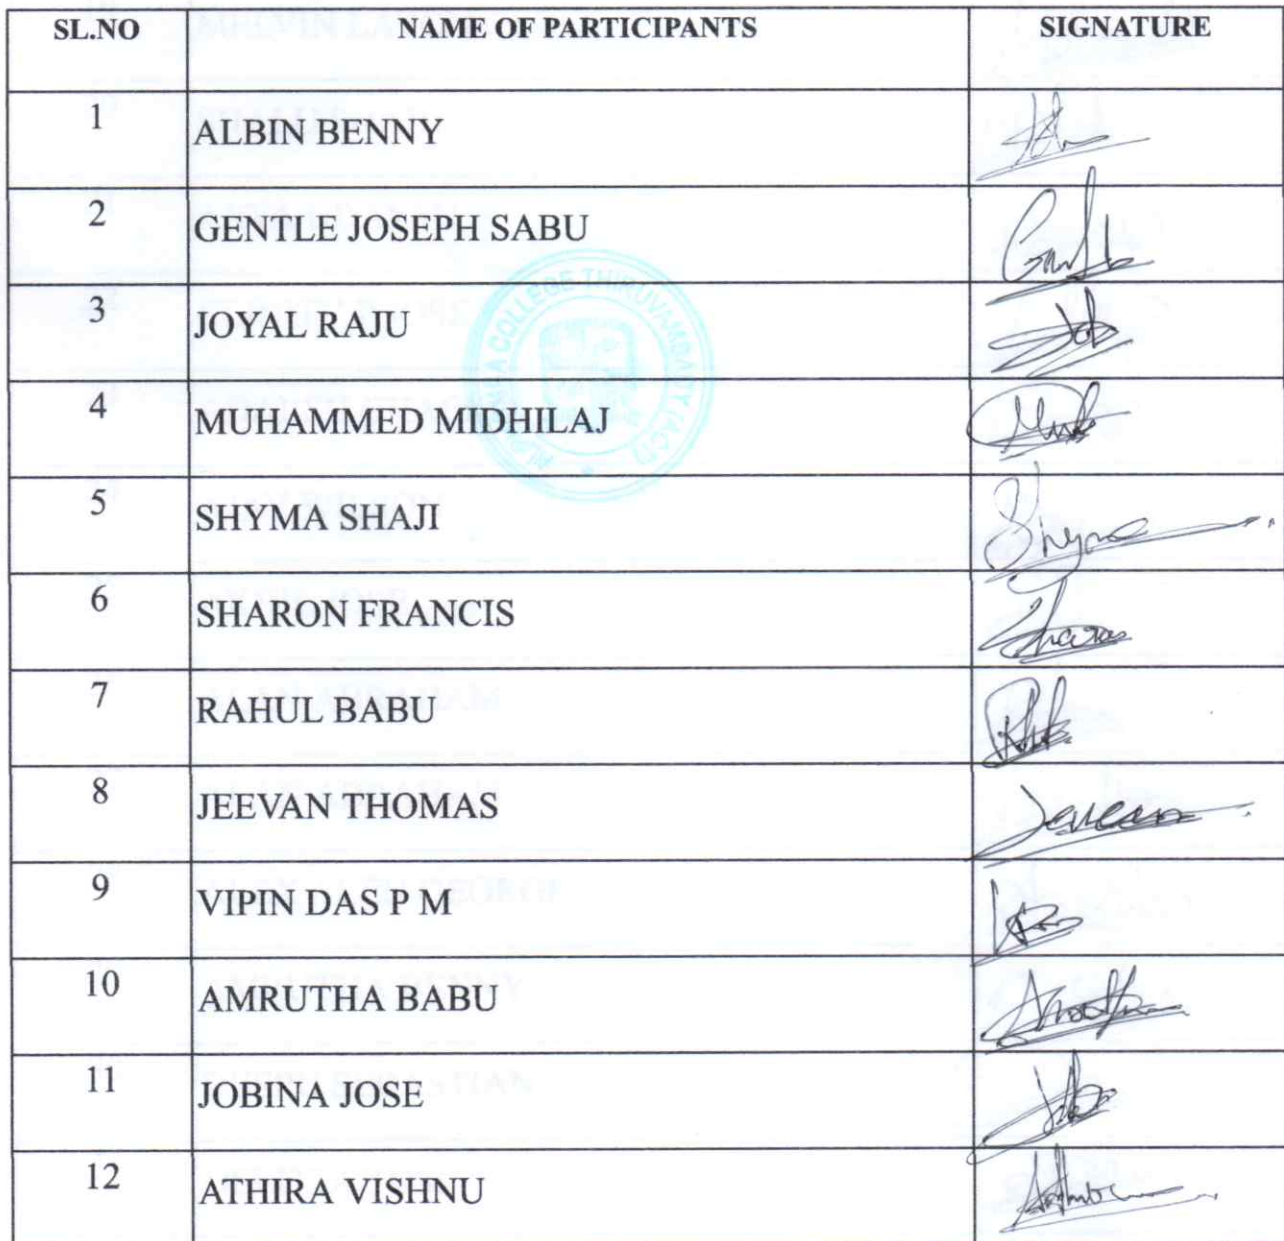 SL.NO NAME OF PARTICIPANTS SIGNATURE
1 ALBIN BENNY
2 GENTLE JOSEPH SABU
3 JOYAL RAJU
COLLEGE THIRUVAMBADY
4 MUHAMMED MIDHILAJ
5 SHYMA SHAJI Shyma
6 SHARON FRANCIS Sharon
7 RAHUL BABU
8 JEEVAN THOMAS Jeevan
9 VIPIN DAS P M
10 AMRUTHA BABU
11 JOBINA JOSE
12 ATHIRA VISHNU